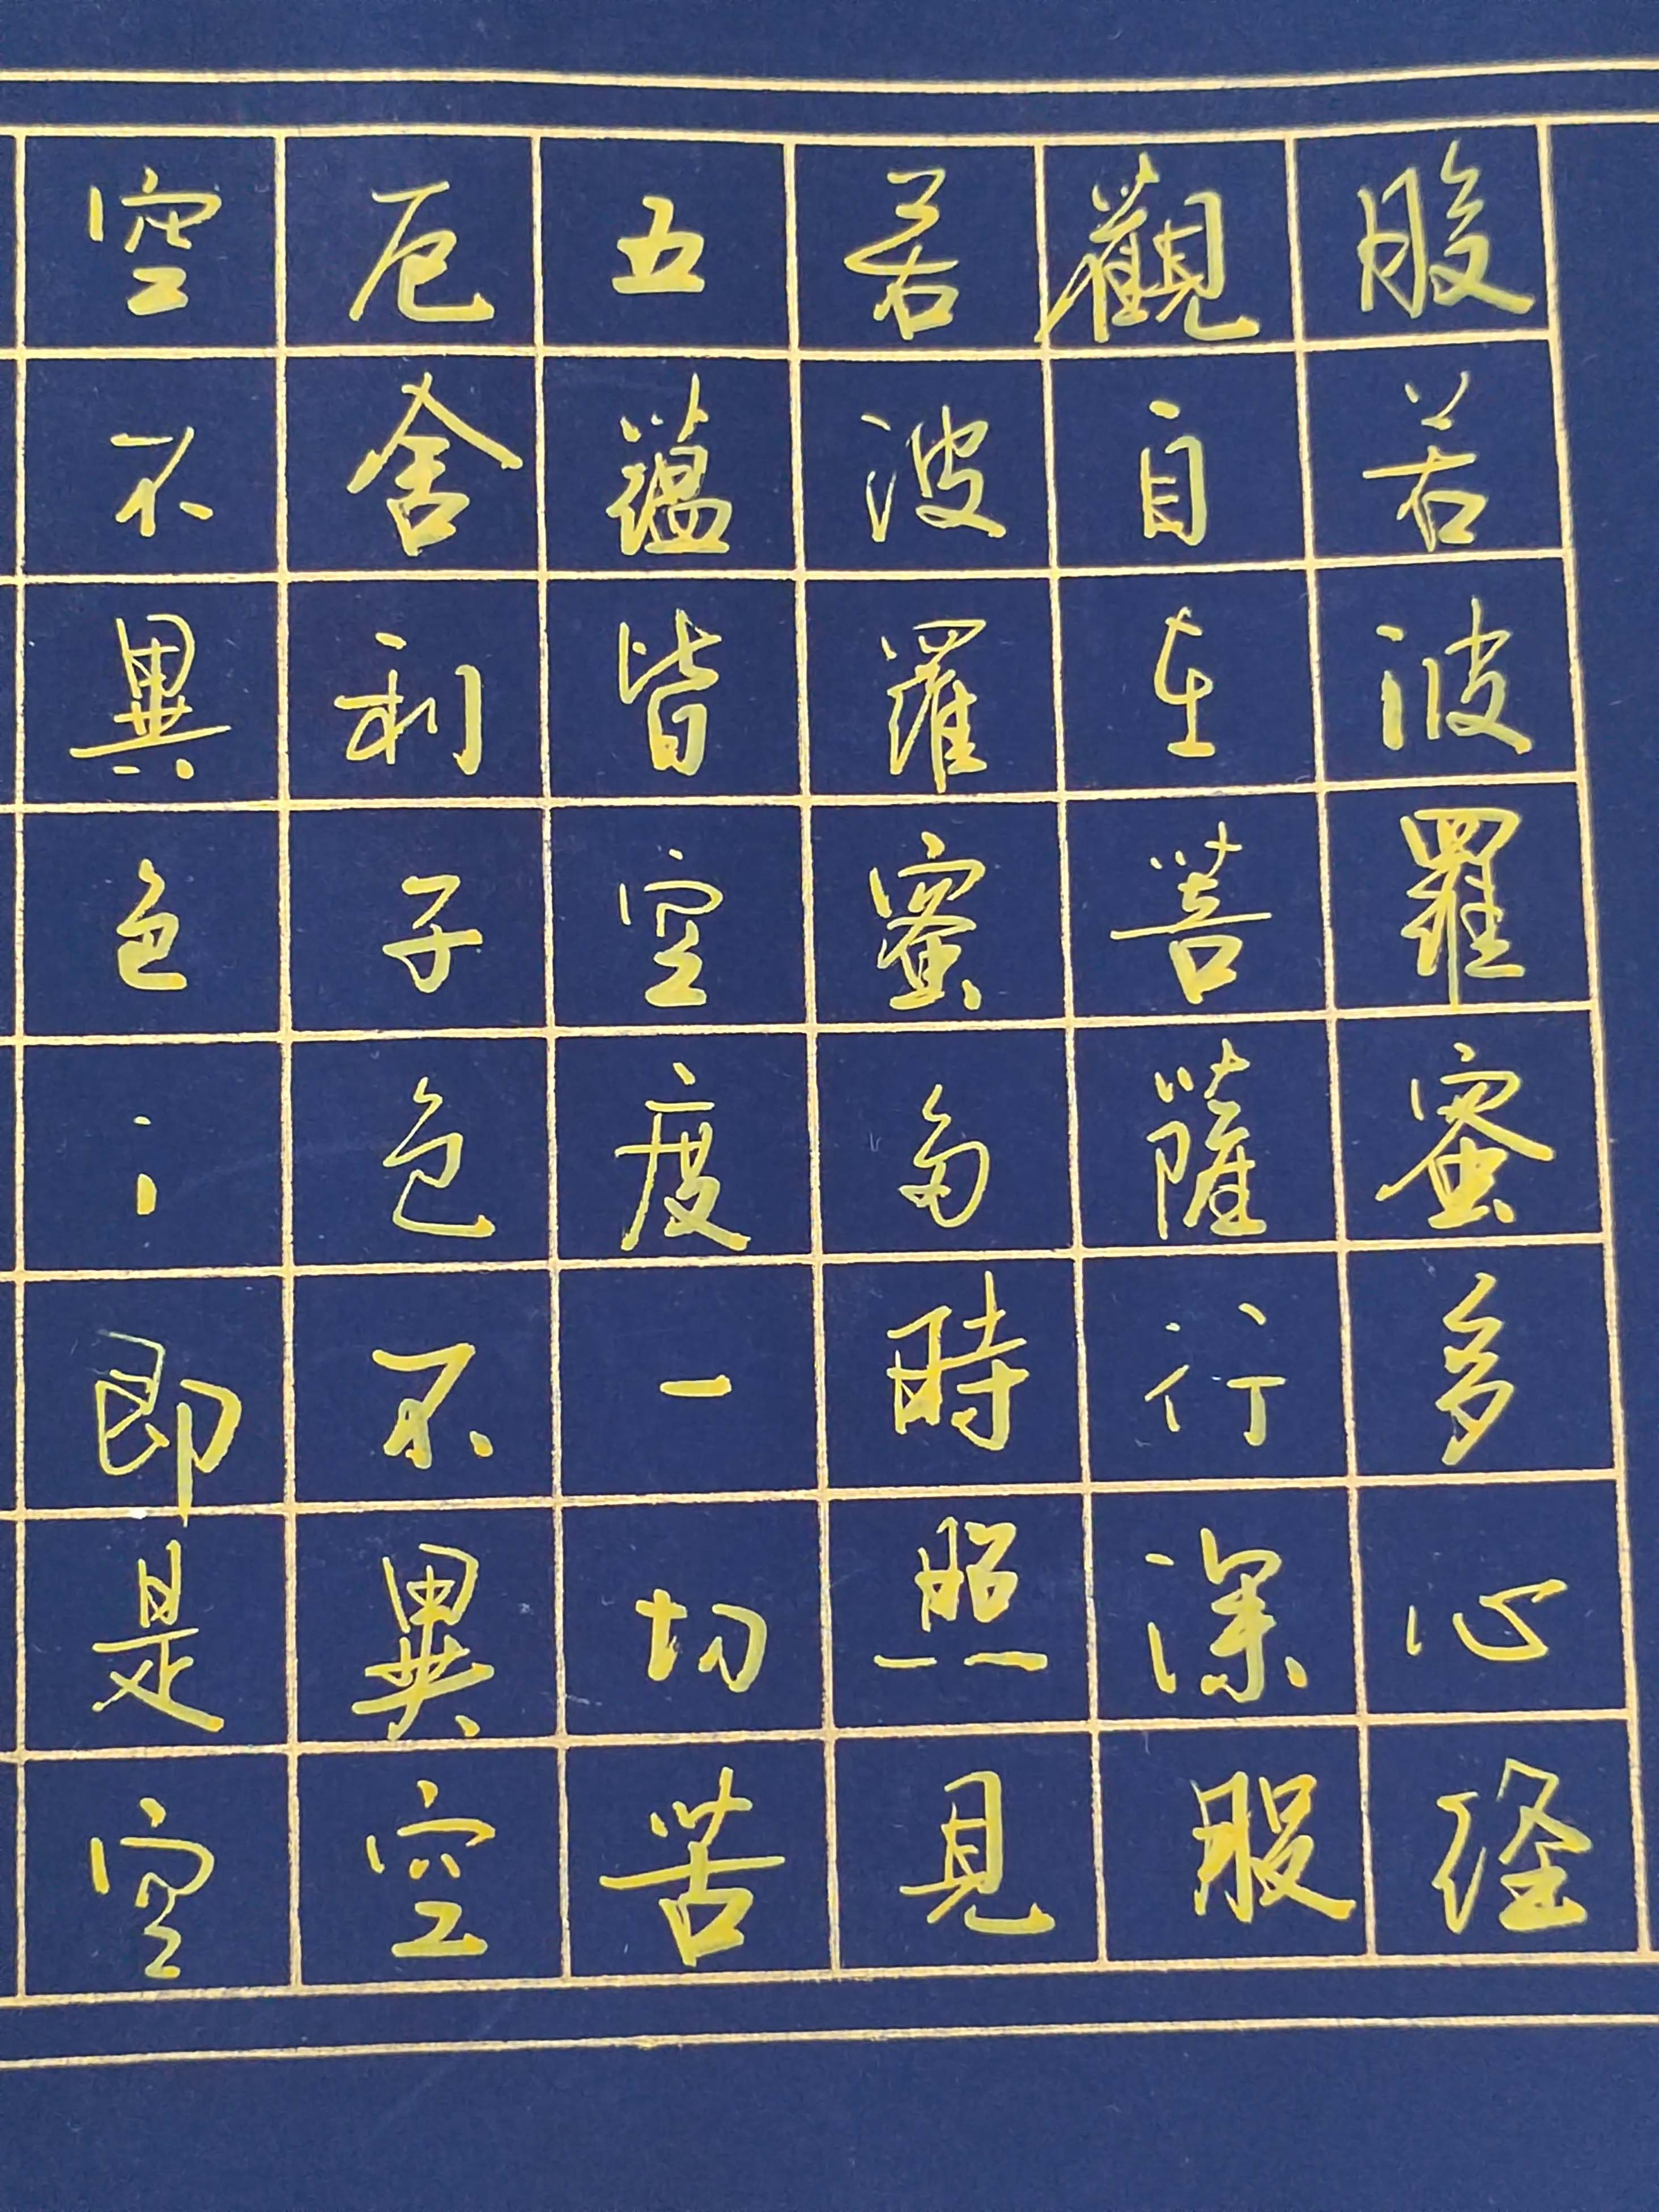 般若波羅蜜多心経
觀自在菩薩行深般
若波羅蜜多時照見
五蘊皆空度一切苦
厄舍利子色不異空
空不異色〻即是空